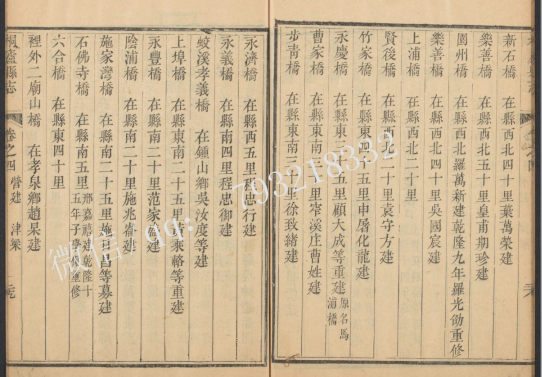 新石橋 在縣西北四十里葉萬榮建
樂善橋 在縣西北五十里皇甫期珍建
園州橋 在縣西北羅萬新建乾隆九年羅光劬重修
樂善橋 在縣西北四十里吳國宸建
上浦橋 在縣西北二十里
賢後橋 在縣西北二十里袁守方建
竹家橋 在縣東南五里申屠化龍建
永慶橋 在縣東南五里顧大成等重建 原名馬浦橋
曹家橋 在縣東南十里窄溪庄曹姓建
步青橋 在縣東南三十里徐致緒建
永濟橋 在縣西五里程忠行建
永義橋 在縣南四里程忠御建
蛟溪孝義橋 在鍾山鄉吳汝度等建
上埠橋 在縣東南二十五里申乘輅等重建
永豐橋 在縣東南二十里范家建
陰浦橋 在縣東南二十里施兆
施家灣橋 在縣東南二十五里施日昌等募建
石佛寺橋 在縣南五里 邢嘉 建乾隆十五年子學 重修
六合橋 在縣東四十里
裡外二廟山橋 在孝泉鄉趙杲建
桐廬縣志 卷之四 營建 津梁 元
微信 qq: 793218332